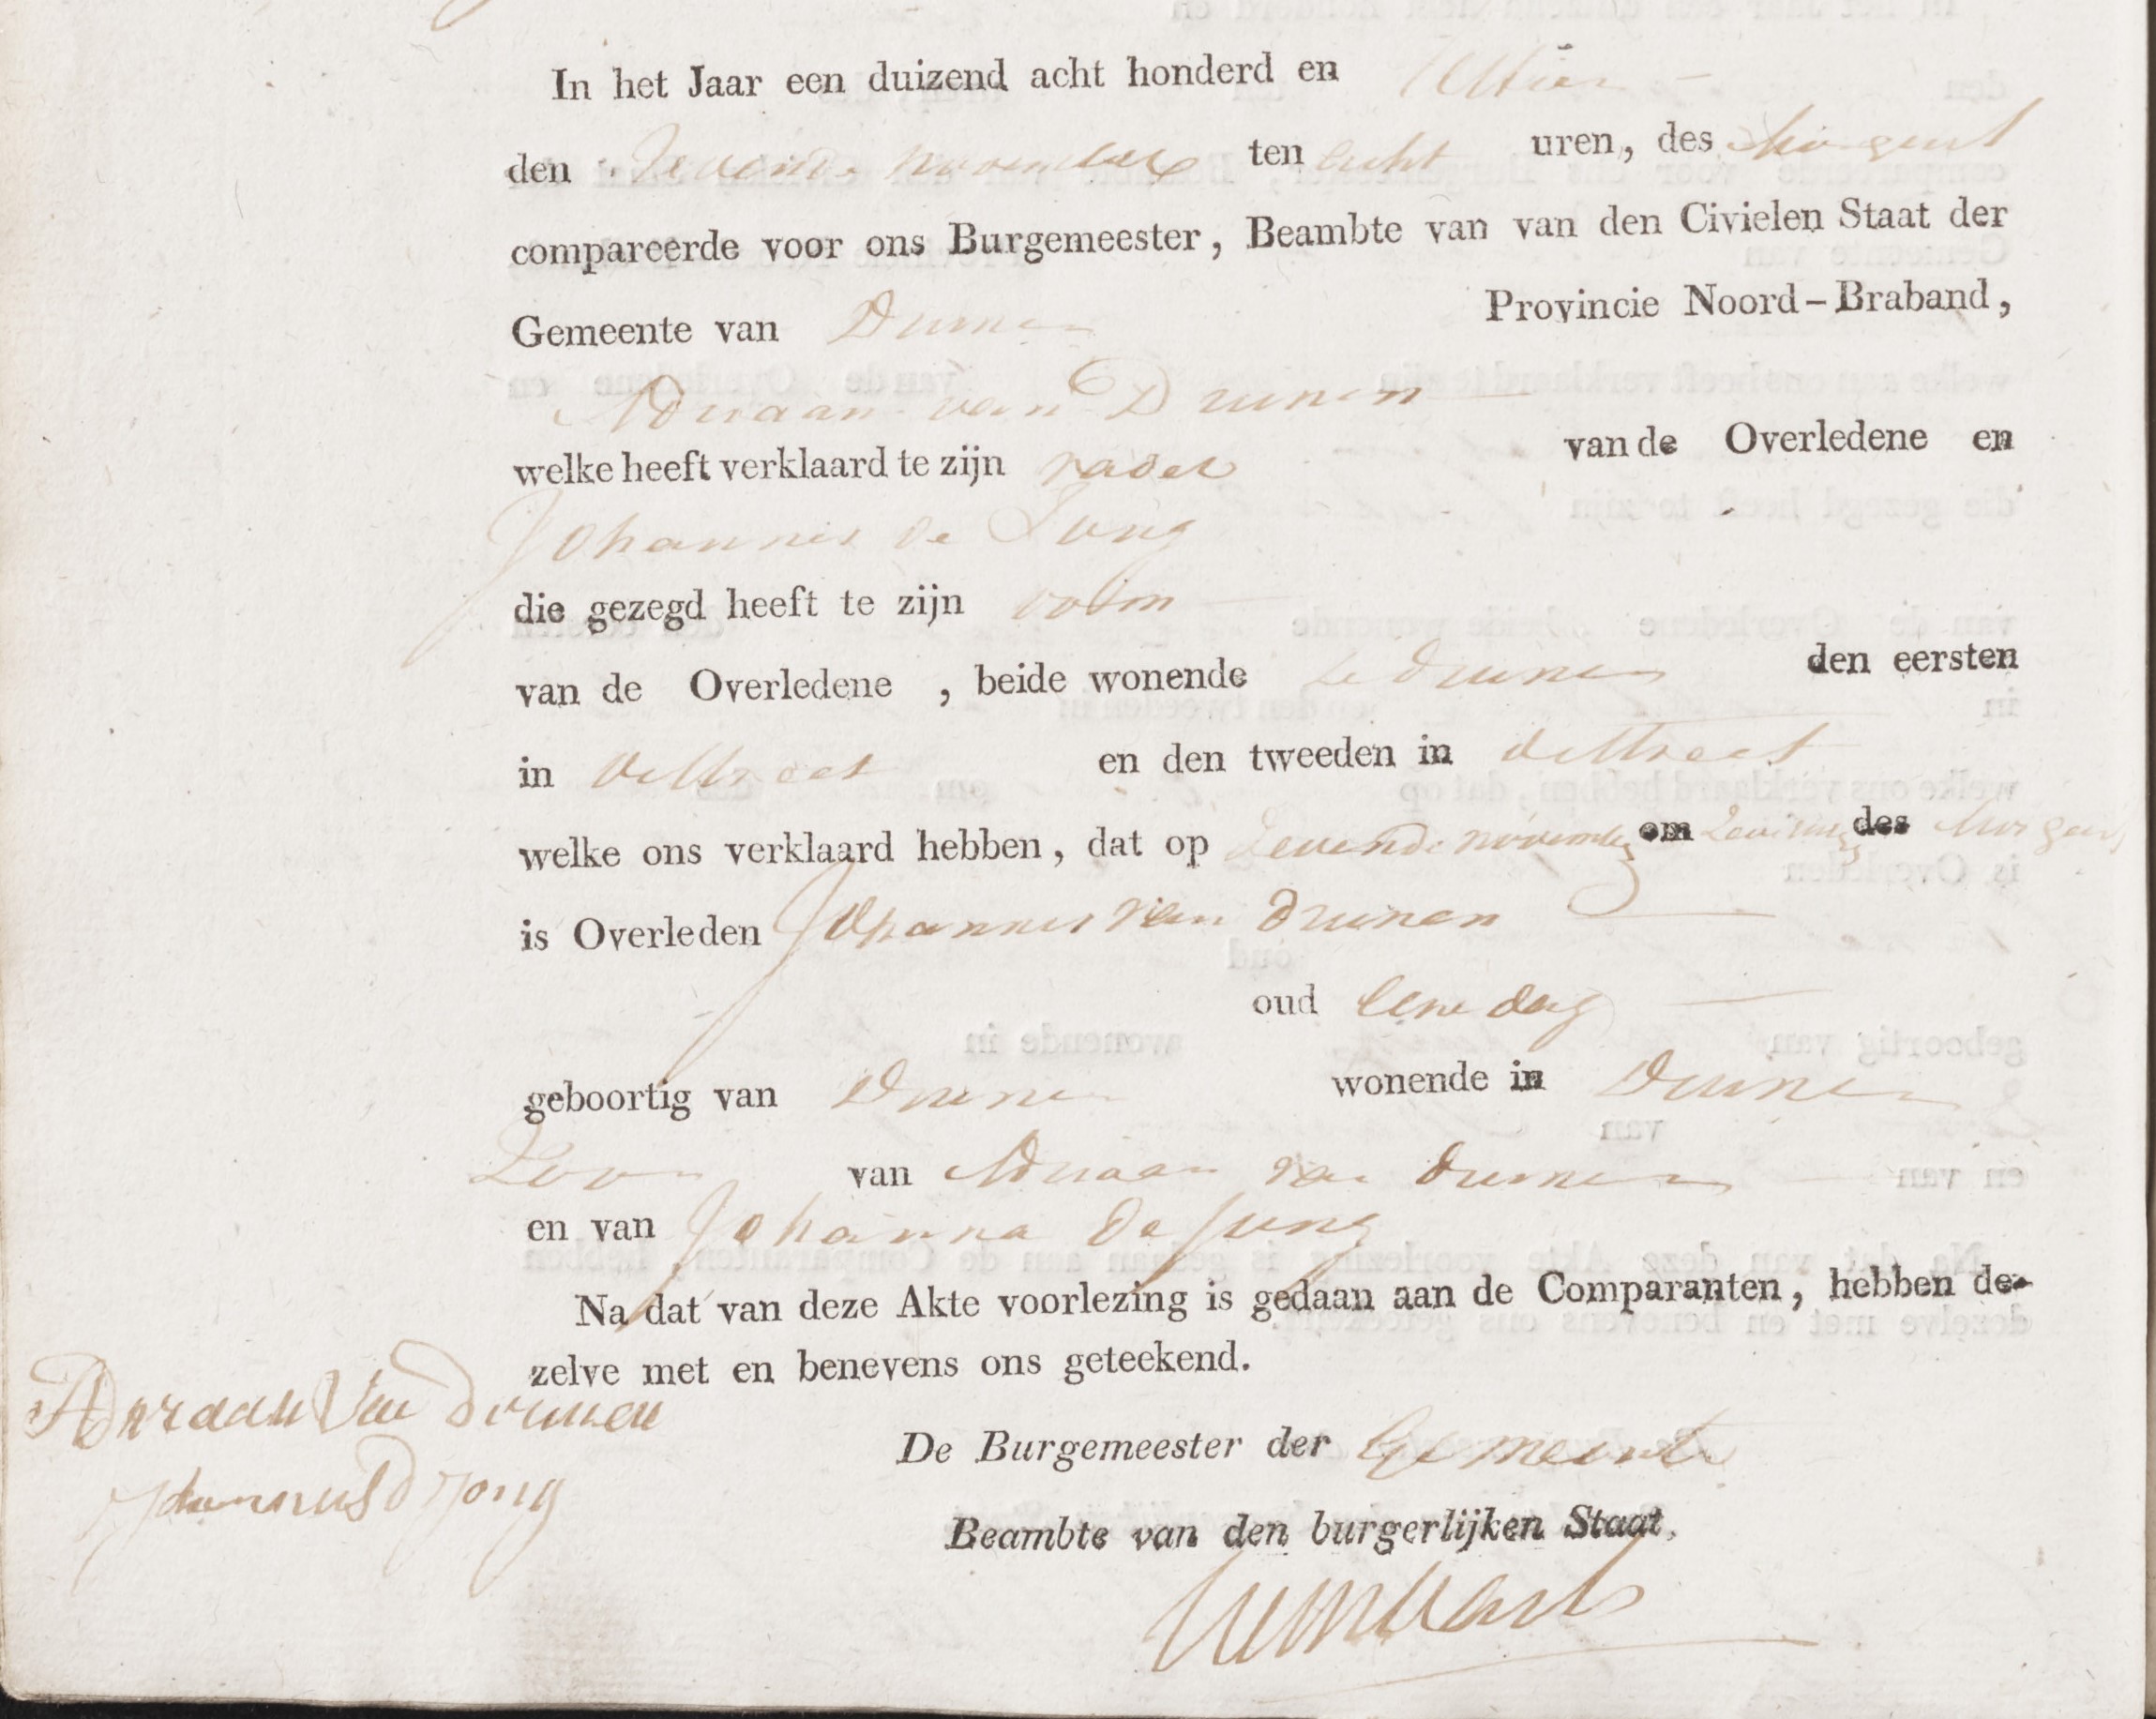 In het Jaar een duizend acht honderd en
den Zevende november ten acht uren, des Morgens
compareerde voor ons Burgemeester, Beambte van van den Civielen Staat der
Gemeente van Drunen Provincie Noord-Braband,
Adriaan van Drunen
welke heeft verklaard te zijn vader van de Overledene en
Johannis de Jong
die gezegd heeft te zijn oom
van de Overledene , beide wonende te Drunen den eersten
in en den tweeden in
welke ons verklaard hebben, dat op Zevende november om des Morgens
is Overleden Johannis van Drunen
oud eene dag
geboortig van Drunen wonende in Drunen
Zoon van Adriaan van Drunen
en van Johanna de Jong
Na dat van deze Akte voorlezing is gedaan aan de Comparanten, hebben de-
zelve met en benevens ons geteekend.
Adraan Van Drunen
De Burgemeester der Gemeente
Johannus D Jong
Beambte van den burgerlijken Staat,